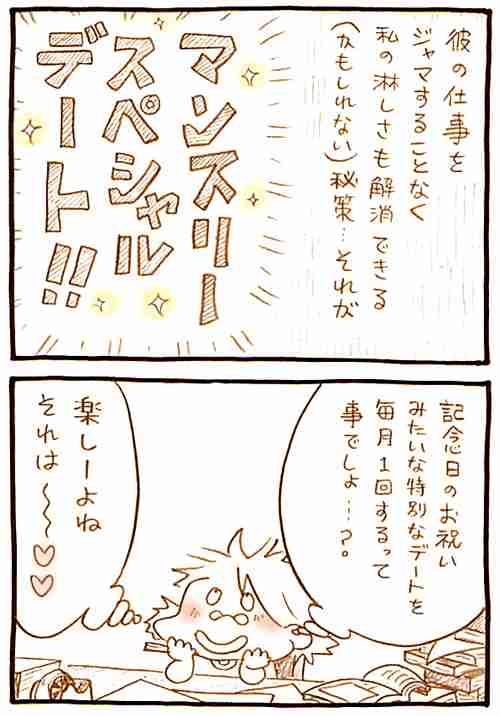 彼の仕事を
ジャマすることなく
私の淋しさも解消できる
(かもしれない)秘策…それが
マンスリー
スペシャル
デート!!
記念日のお祝い
みたいな特別なデートを
毎月1回するって
事でしょ…?。
楽しーよね
それは〜〜♡♡